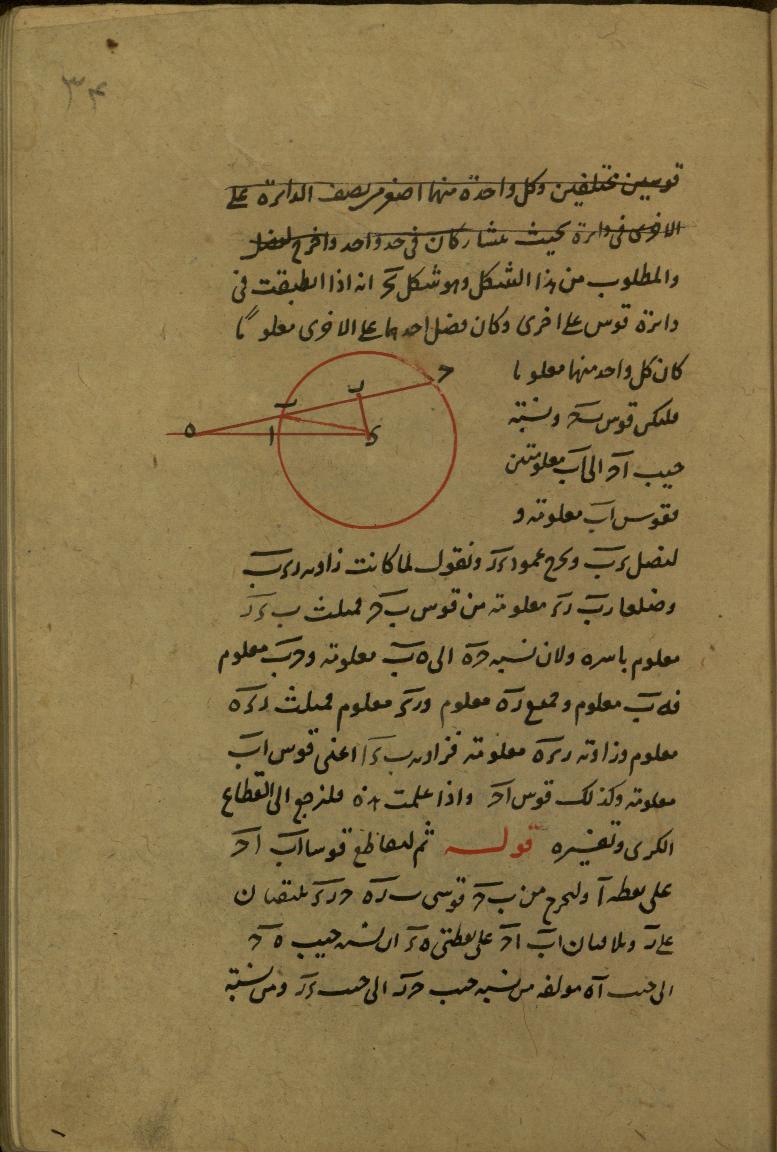 ٣٤
قوسين مختلفين وكل واحدة منها اصغر من نصف الدائرة على
الاخرى فى دائرة بحيث يتشاركان فى حد واحد واخرج لفصل
والمطلوب من هذا الشكل وهو شكل انه اذا انطبقت فى
دائرة قوس على اخرى وكان فضل احدهما على الاخرى معلوما
كان كل واحد منها معلوما
فليكن قوس ب ح ونسبته
جيب ا ح الى ا ب معلومتين
فقوس ا ب معلومة و
لنصل ء ب ونخرج عمود ء ر ونقول لما كانت زاوية ر ء ب
وضلعا ر ب ر ء معلومة من قوس ب ح فمثلث ب ء ر
معلوم باسره ولان نسبة ح ه الى ه ب معلومة و ح ب معلوم
فه ب معلوم وجميع ر ه معلوم و ر ء معلوم فمثلث ر ء ه
معلوم وزاوية ر ء ه معلومة فزاوية ب ء ا اعنى قوس ا ب
معلومة وكذلك قوس ا ح واذا علمت هذه فلنرجع الى القطاع
الكرى وتفسيره قوله ثم ليتقاطع قوسا ا ب ا ح
على نقطة ا وليخرج من ب ح قوسى ب ر ه ح ر ء يلتقيان
على ر ويلاقيان ا ب ا ح على نقطتى ه ء ان نسبة جيب ه ح
الى جيب ا ه مولفة من نسبة جيب ح ر الى جيب ء ر ومن نسبة
ح
ر
ب
ه
ا
ء